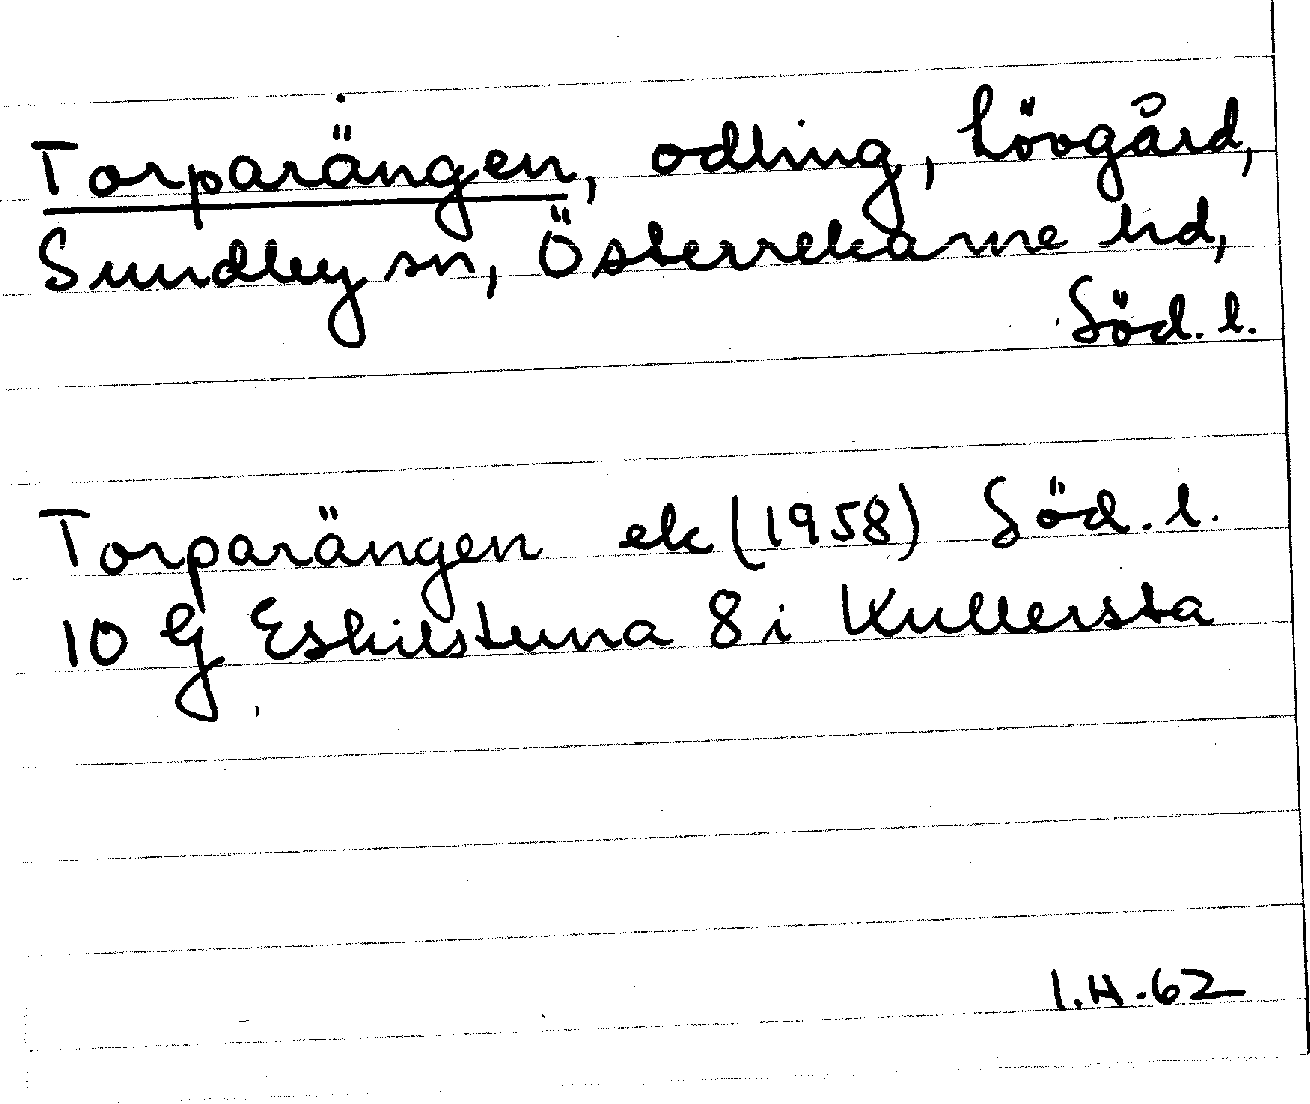 Torparängen, odling, Lövgård,
Sundby sn, Österrekarne hd,
Söd. l.
Torparängen ek (1958) Söd. l.
10 G Eskilstuna 8 i Kullersta
I.H.62